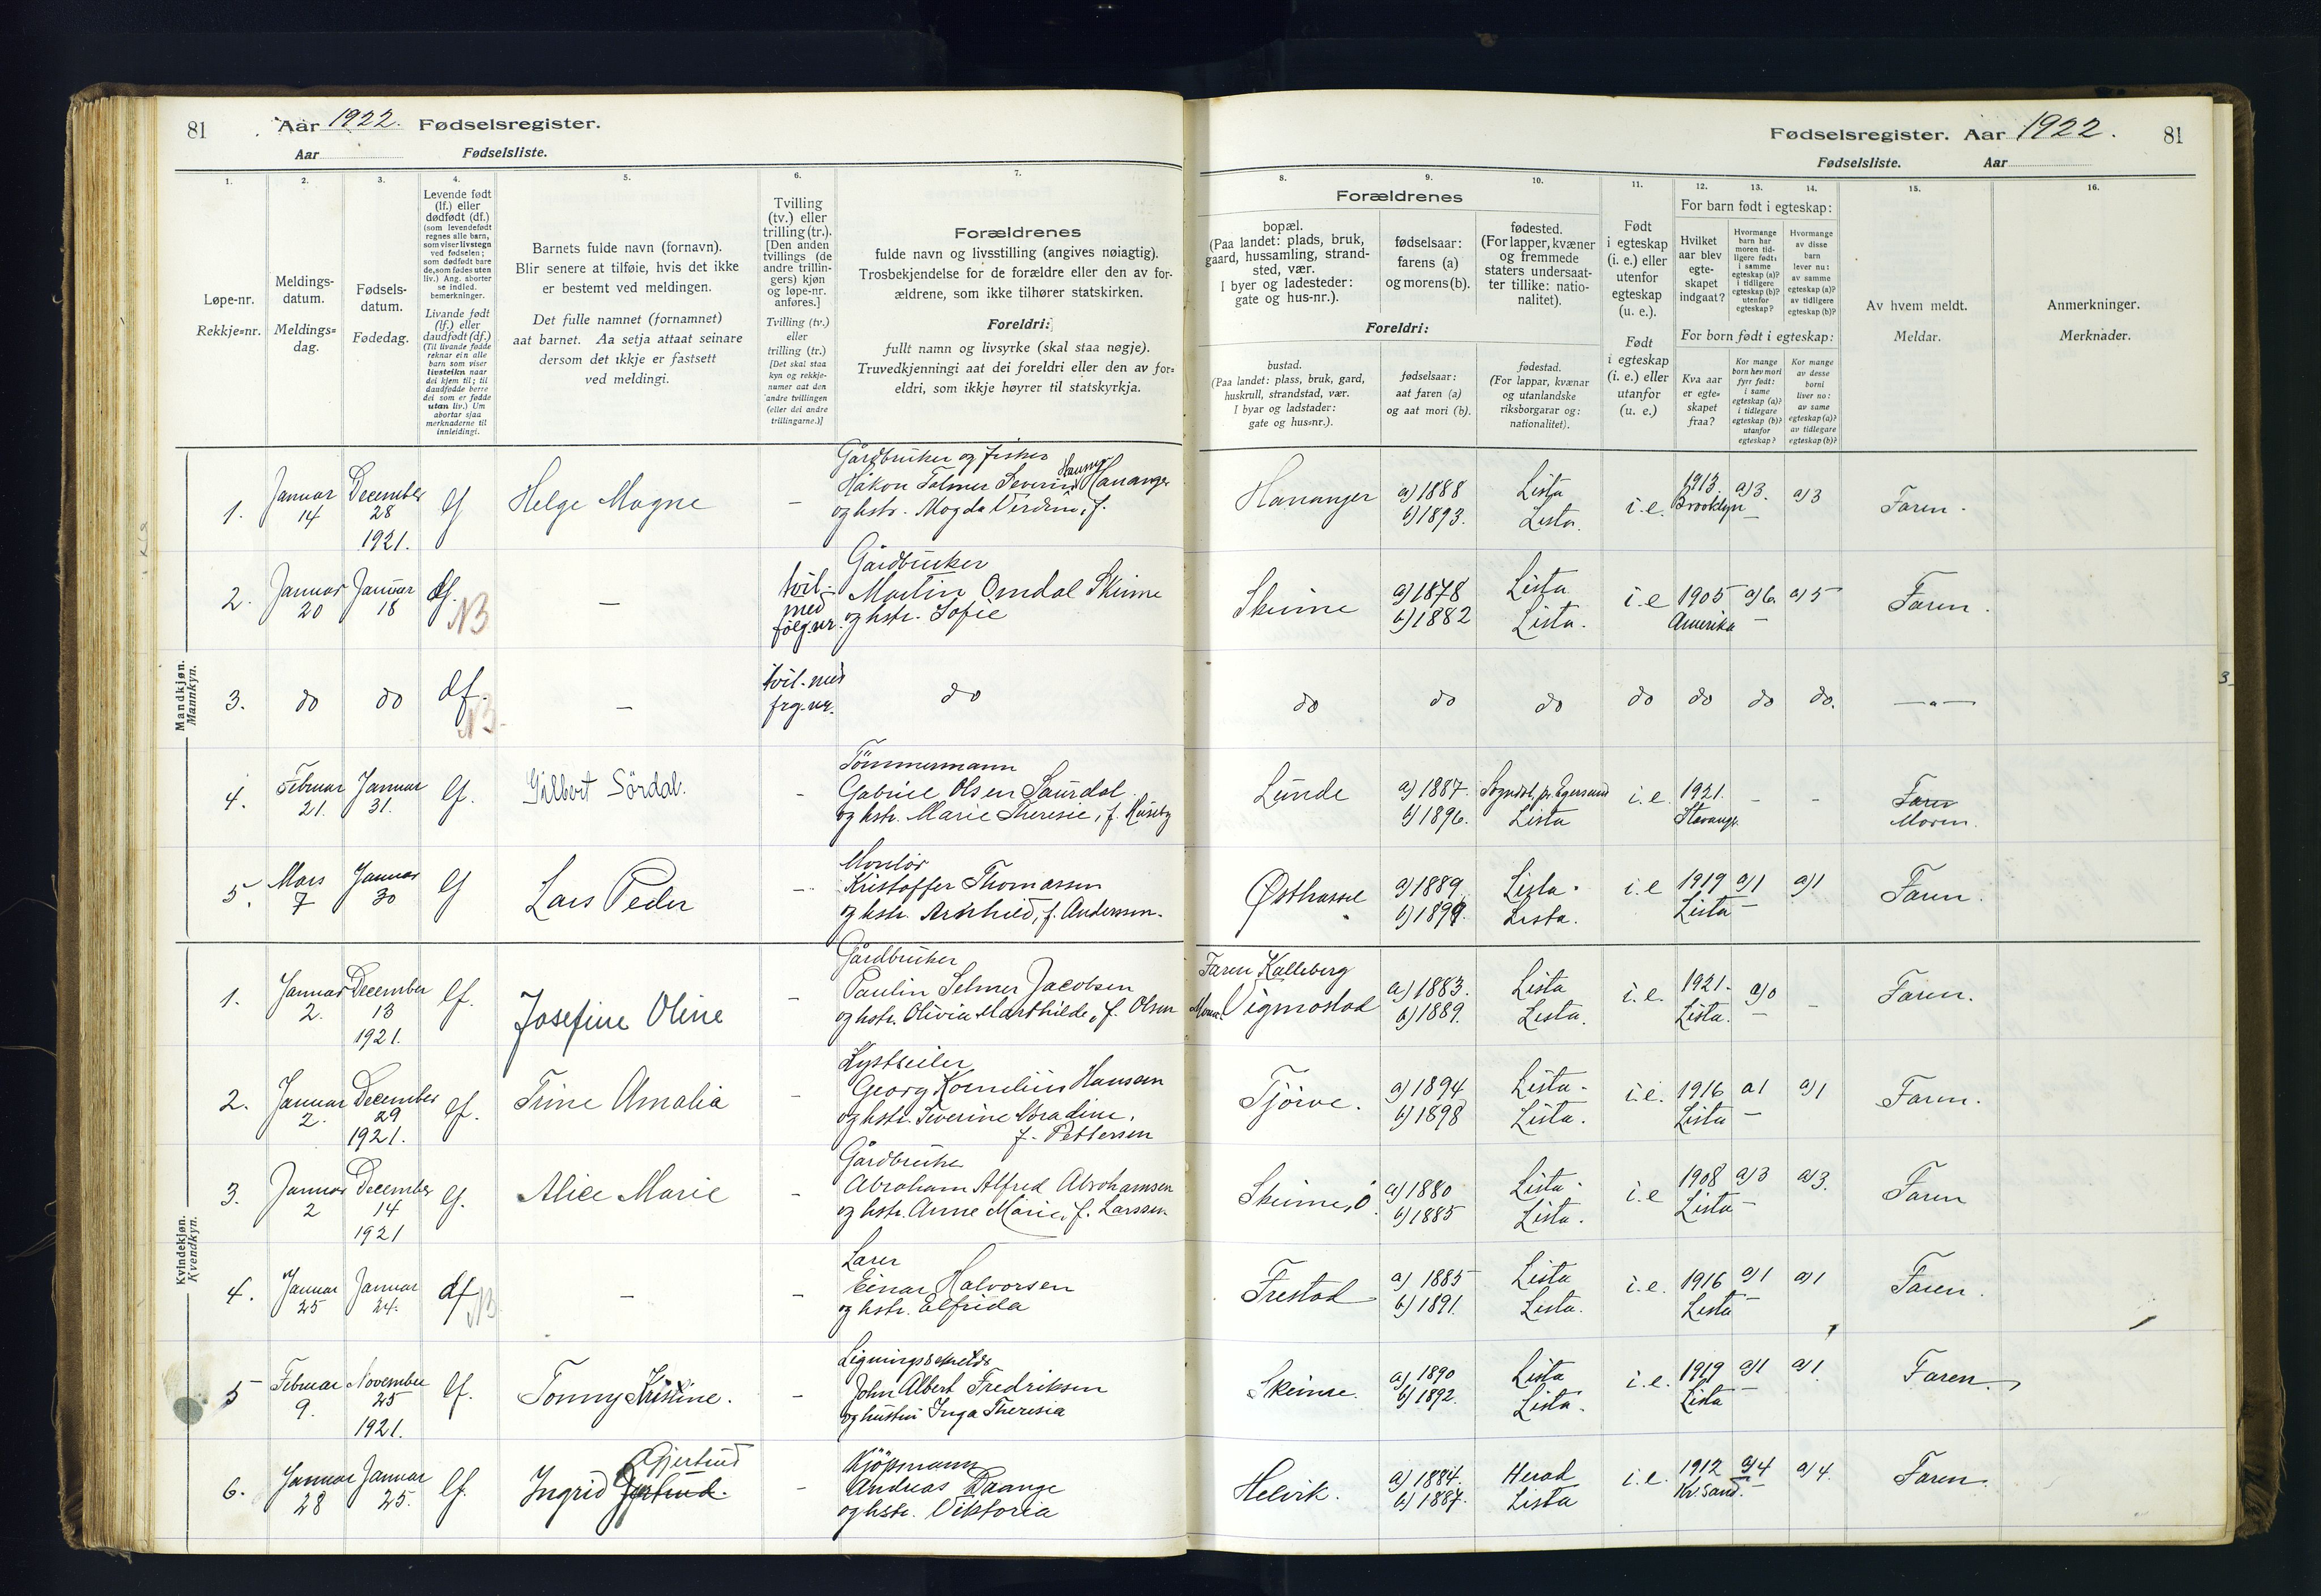 81
Aar 1922. Fødselsregister.
Aar Fødselsliste.
Fødselsregister. Aar 1922. 81
Fødselsliste. Aar
1.
Løpe-nr.
Rekkje=nr.
2.
Meldings-
datum.
Meldings=
dag.
3.
Fødsels-
datum.
Fødedag.
4.
Levende født
(lf.) eller
dødfødt (df.)
(som levendefødt
regnes alle barn,
som viser livstegn
ved fødselen;
som dødfødt bare
de, som fødes uten
liv.) Ang. aborter
se indled.
bemerkninger.
Livande født
(lf.) eller
daudfødt (df.)
(Til livande fødde
reknar ein alle
barn som viser
livsteikn naar
dei kjem til; til
daudfødde berre
dei som er fødde
utan liv.) Um
abortar sjaa
merknaderne til
innleidingi.
5.
Barnets fulde navn (fornavn).
Blir senere at tilføie, hvis det ikke
er bestemt ved meldingen.
Det fulle namnet (fornamnet)
aat barnet. Aa setja attaat seinare
dersom det ikkje er fastsett
ved meldingi.
6.
Tvilling
(tv.) eller
trilling (tr.).
[Den anden
tvillings (de
andre trillin-
gers) kjøn
og løpe-nr.
anføres.]
Tvilling (tv.)
eller
trilling (tr.)
[Det skal staa
kyn og rekkje-
numer aat den
andre tvillingen
(eller dei andre
trillingarne.)]
7.
Forældrenes
fulde navn og livsstilling (angives nøiagtig).
Trosbekjendelse for de forældre eller den av for-
ældrene, som ikke tilhører statskirken.
Foreldri:
fullt namn og livsyrke (skal staa nøgje).
Truvedkjenningi aat dei foreldri eller den av for=
eldri, som ikkje høyrer til statskyrkja.
Forældrenes
8.
bopæl.
(Paa landet: plads, bruk,
gaard, hussamling, strand-
sted, vær.
I byer og ladesteder:
gate og hus-nr.).
9.
fødselsaar:
farens (a)
og morens (b).
10.
fødested.
(For lapper, kvæner
og fremmede
staters undersaat-
ter tillike: natio-
nalitet).
Foreldri:
bustad.
(Paa landet: plass, bruk, gard,
huskrull, strandstad, vær.
I byar og ladstader:
gate og hus=nr.).
fødselsaar:
aat faren (a)
og aat mori (b).
fødestad.
(For lappar, kvænar
og utanlandske
riksborgarar og:
nationalitet).
11.
Født
i egteskap
(i. e.) eller
utenfor
egteskap
(u. e.).
Født
i egteskap
(i. e.) eller
utanfor
(u. e.)
For barn født i egteskap:
12.
Hvilket
aar blev
egte-
skapet
indgaat?
13.
Hvormange
barn har
moren tid-
ligere født:
i samme
egteskap (a)?
i tidligere
egteskap (b)?
utenfor
egteskap?
14.
Hvormange
av disse
barn
lever nu:
av samme
egteskap (a)?
av tidligere
egteskap (b)?
For born født i egteskap:
Kva aar
er egte=
skapet
fraa?
Kor mange
born hev mori
fyrr født:
i same
egteskap (a)?
i tidlegare
egteskap (b)?
utanfor
egteskap?
Kor mange
av desse
borni
liver no:
av same
egteskap (a)?
av tidlegare
egteskap (b)?
15.
Av hvem meldt.
Meldar.
16.
Anmerkninger.
Merknader.
Mandkjøn.
Mannkyn.
1. Januar 14 December 28 1921. lf Helge Magne –
Gårdbruker og fisker
Håkon Tolmer Severin Hananger
og hstr. Magda Verdine, f.
Hananger a) 1888 b) 1893. Lista Lista. i.e. 1913. Brooklyn a) 3. – a) 3 Faren.
2. Januar 20 Januar 18 df. NB – tvil- med følg. nr.
Gårdbruker
Martin Omdal Skeime
og hstr. Sofie
Skeime a) 1878 b) 1882 Lista Lista. i.e 1905 Amerika a) 6. – a) 5 Faren.
3. do do df. NB. – tvil. med frg. nr. do
do do do do do do do. –„–
4. Februar 21. Januar 31. lf. Gilbert Sördal. –
Tömmermann
Gabriel Olsen Saurdal
og hstr. Marie Theresie, f. Huseby
Lunde a) 1887. b) 1896. Sogndal, pr. Egersund Lista i.e. 1921. Stavanger – – Faren Moren.
5. Mars 7 Januar 30 lf Lars Peder –
Montör
Kristoffer Thomassen
og hstr. Arnhild, f. Andersen.
Østhassel a) 1889. b) 1899. Lista. Lista. i.e 1919 Lista a) 1 – a) 1 Faren.
Kvindekjøn.
Kvendkyn.
1. Januar 2. December 13 1921. lf. Josefine Oline –
Gårdbruker
Paulin Selmer Jacobsen
og hstr. Olivia Marthilde, f. Olsen
Faren Kalleberg
Moren Vigmostad a) 1883. b) 1889. Lista Lista. i.e. 1921. Lista. a) 0 – – Faren.
2. Januar 2. December 29 1921. lf. Trine Amalia –
Kystseiler
Georg Kornelius Hansen
og hstr. Severine Abradine,
f. Pettersen
Tjörve. a) 1894 b) 1898 Lista. Lista. i.e. 1916 Lista a 1 – a) 1 Faren.
3. Januar 2 December 14 1921 lf. Alice Marie –
Gårdbruker
Abraham Alfred Abrahamsen
og hstr. Anne Marie, f. Larssen
Skeime, Ö. a) 1880 b) 1885 Lista. Lista. i.e 1908 Lista a) 3 – a) 3. Faren
4. Januar 25 Januar 24. df NB – –
Lærer
Einar Halvorsen
og hstr. Elfrida
Frestad a) 1885 b) 1891. Lista Lista. i.e. 1916 Lista a) 1 – a) 1 Faren.
5 Februar 9. November 25 1921. lf. Tonny Kristine. –
John Albert Fredriksen
og hustru Inga Theresia
Skeime. a) 1890 b) 1892. Lista Lista. i.e. 1919 Lista a) 1 – a) 1. Faren.
6. Januar 28 Januar 25. lf. Ingrid Gjertrud –
Kjöpmann
Andreas Drange
og hstr. Viktoria
Helvik. a) 1884. b) 1887. Herad Lista i.e. 1912 Kr.sand. a) 4 – a) 4. Faren.